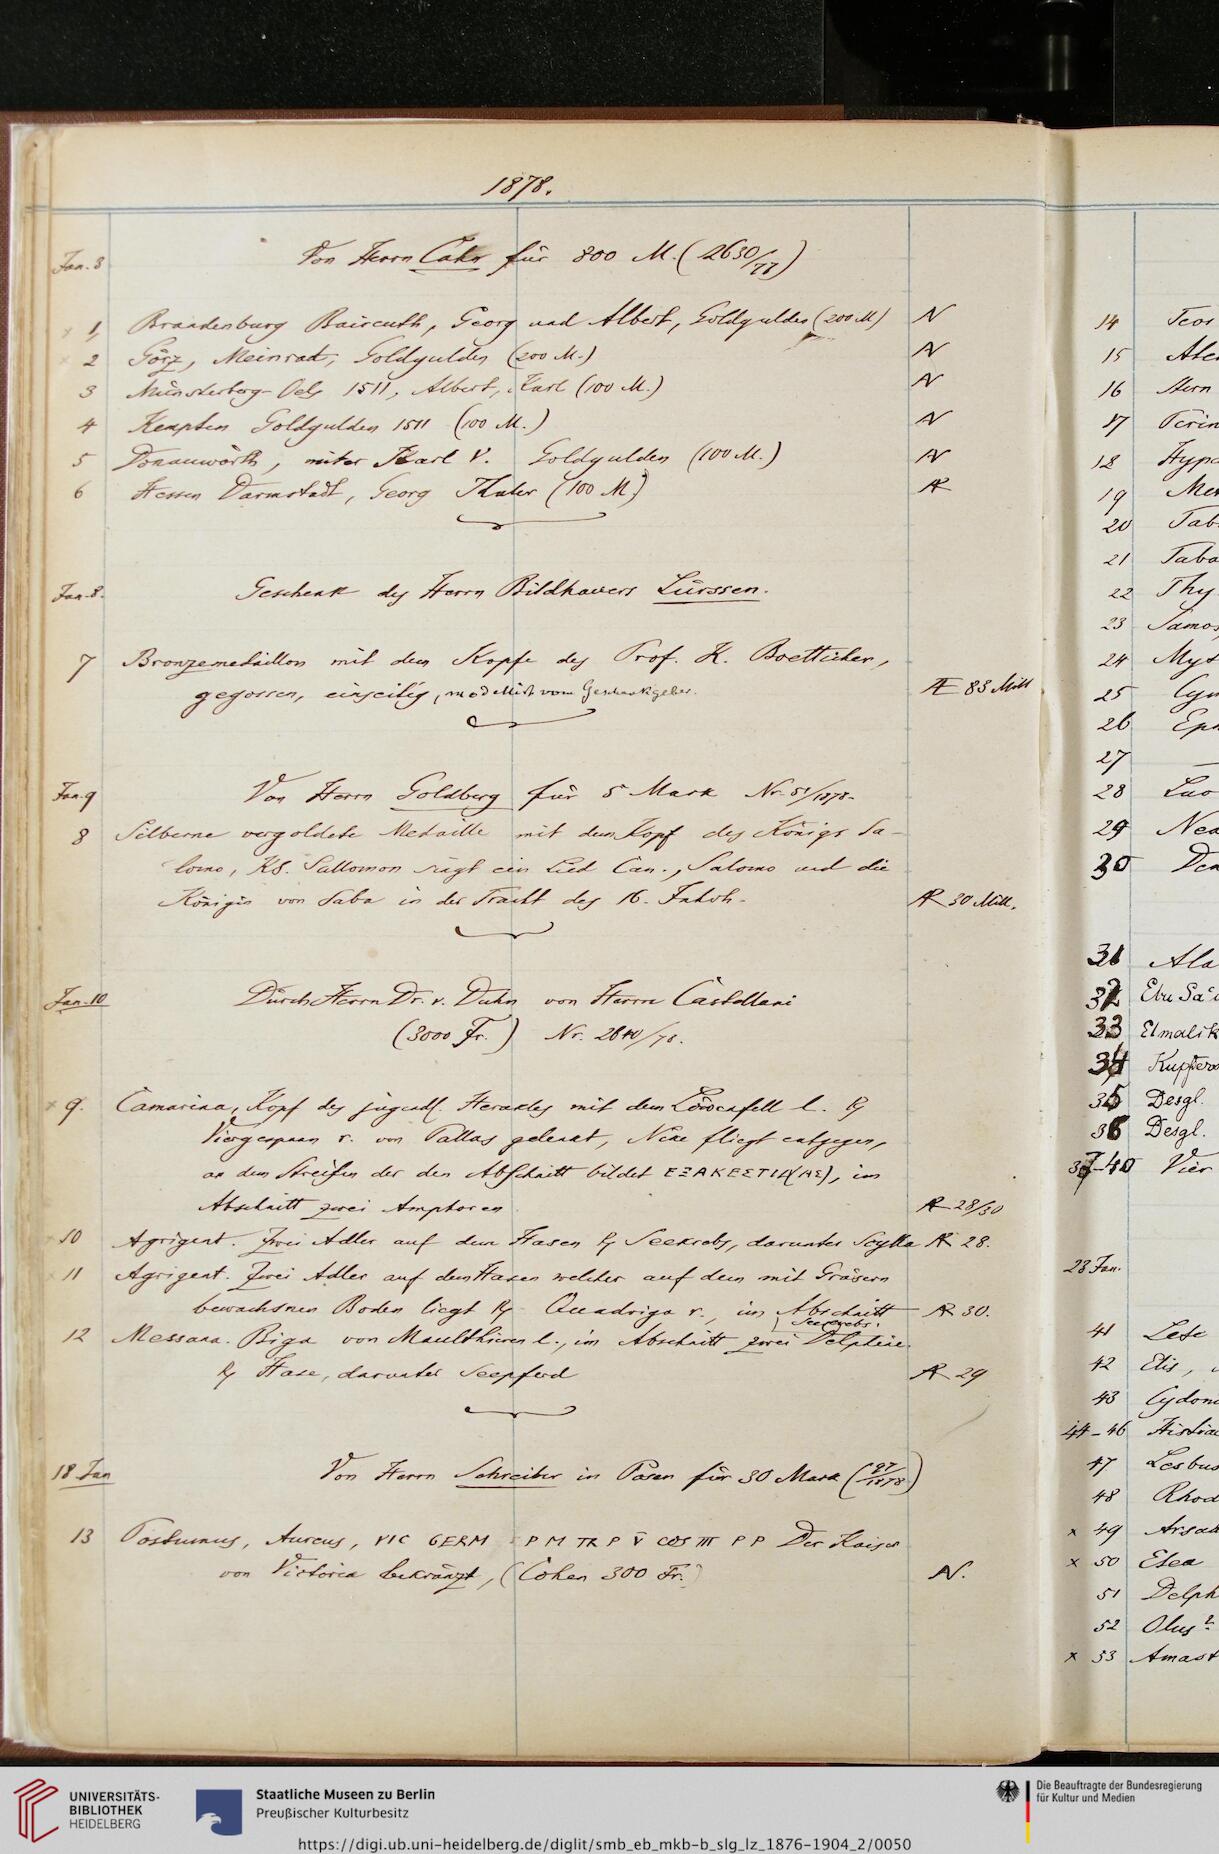 1878.
Jan. 3 Von Herrn Cahn für 800 M. (2630/77)
1, Brandenburg Baireuth, Georg und Albert, Goldgulden (200 M) N
2 Görz, Meinrad, Goldgulden (200 M.) N
3 Münsterberg-Oels 1511, Albert, Karl (100 M.) N
4 Kempten Goldgulden 1511 (100 M.) N
5 Donauwörth, unter Karl V. Goldgulden (100 M.) N
6 Hessen Darmstadt, Georg Thaler (100 M) AR
Jan. 8. Geschenk des Herrn Bildhauers Lürssen.
7 Bronzemedaillon mit dem Kopfe des Prof. K. Boetticher,
gegossen, einseitig, modellirt vom Geschenkgeber. Æ 83 Mill
Jan. 9 Von Herrn Goldberg für 5 Mark Nr. 51/1878.
8 Silberne vergoldete Medaille mit dem Kopf des Königs Sa-
lomo, Ks. Sallomon singt ein Lied Can., Salomo und die
Königin von Saba in der Tracht des 16. Jahrh. AR 30 Mill.
Jan. 10 Durch Herrn Dr. v. Duhn von Herrn Castellani
(3000 Fr.) Nr. 2640/78.
x 9. Camarina, Kopf des jugendl. Herakles mit dem Löwenfell l. R
Viergespann r. von Pallas gelenkt, Nike fliegt entgegen,
an dem Streifen der den Abschnitt bildet ΕΞΑΚΕΣΤΙΔ(ΑΣ), im
Abschnitt zwei Amphoren AR 28/30
10 Agrigent. Zwei Adler auf dem Hasen R Seekrebs, darunter Scylla AR 28.
11 Agrigent. Zwei Adler auf dem Hasen welcher auf dem mit Gräsern
bewachsnen Boden liegt R Quadriga r., im Abschnitt AR 30.
Seekrebs.
12 Messana. Biga von Maulthieren l., im Abschnitt zwei Delphine
R Hase, darunter Seepferd AR 29
18 Jan Von Herrn Schreiber in Posen für 30 Mark (97/1878)
13 Postumus, Aureus, VIC GERM P M TR P V COS III P P Der Kaiser
von Victoria bekränzt, (Cohen 300 Fr.) N.
14 Teos
15
16
17
18
19
20
21
22 Thy
23 Samos,
24
25
26
27 —
28
29
30
31 Ala
32
33 Elmalik
34
35 Desgl.
36 Desgl.
37-40 Vier
23 Jan.
41
42 Elis,
43
44-46
47 Lesbos
48
x 49
x 50 Elea
51
52 Olus?
x 53
UNIVERSITÄTS-
BIBLIOTHEK
HEIDELBERG
Staatliche Museen zu Berlin
Preußischer Kulturbesitz
Die Beauftragte der Bundesregierung
für Kultur und Medien
https://digi.ub.uni-heidelberg.de/diglit/smb_eb_mkb-b_slg_lz_1876-1904_2/0050